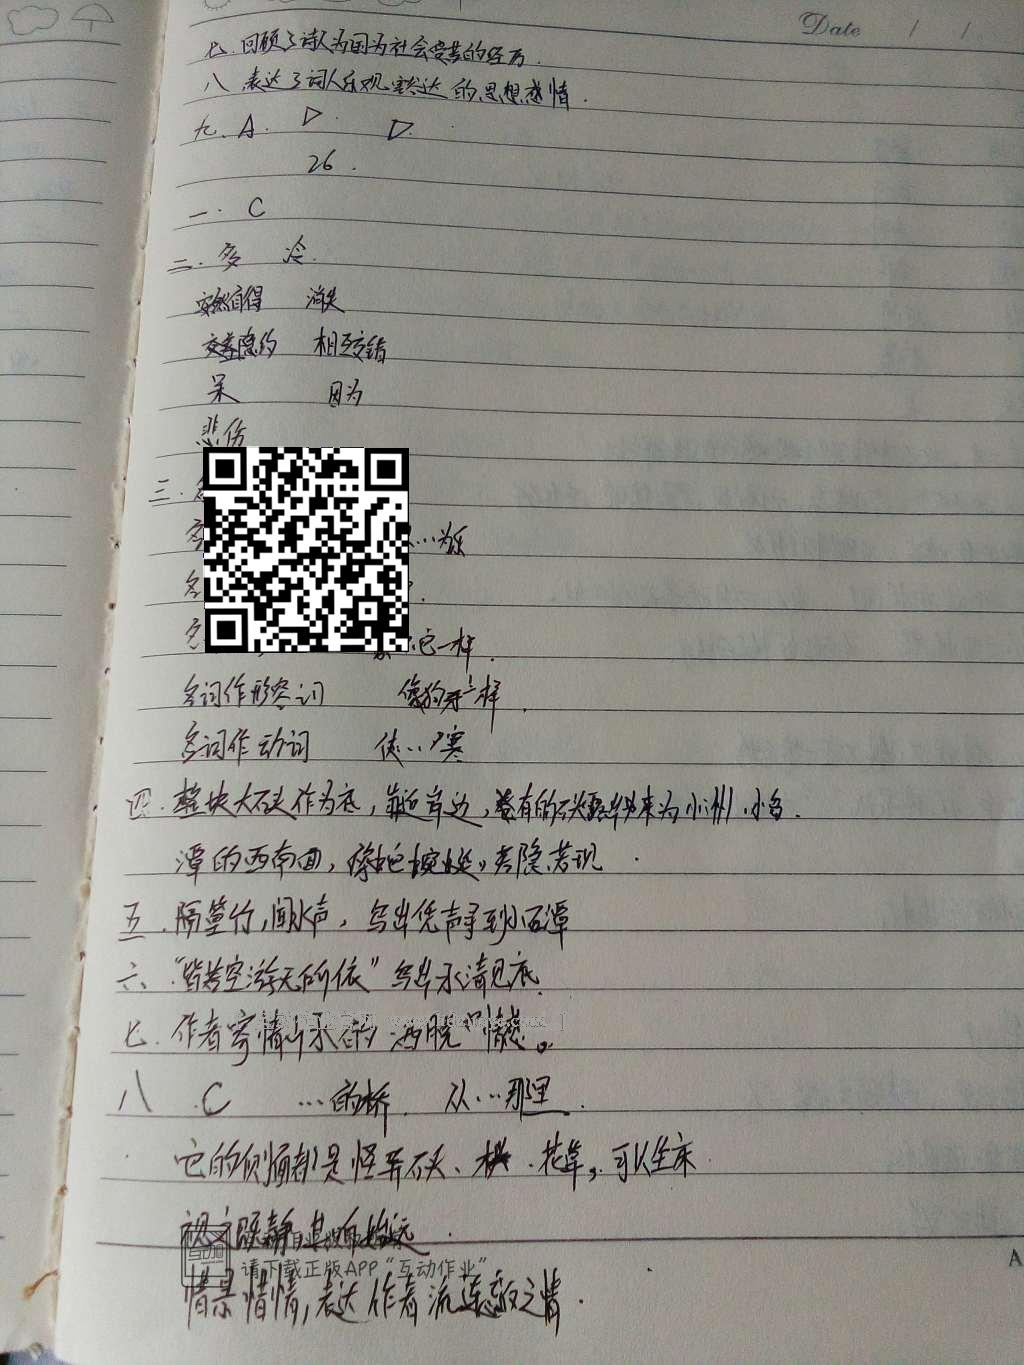 Date / /
七.回顾了诗人为国为社会受苦的经历.
八 表达了词人乐观豁达的思想感情.
九.A. D. D.
26.
一.C
二.多 冷.
安然自得 消失
交替隐约 相互交错
呆 因为
悲伤
三.
…为乐
它一样.
名词作形容词 像狗牙一样.
名词作动词 使…寒
四.整块大石头作为底,靠近岸边,卷有的石头 来为小洲.小岛.
潭的西南面, 若隐若现.
五.隔篁竹,闻水声,写出凭声寻到小石潭
六."皆若空游无所依"写出水清见底.
七.作者寄情山水的洒脱情感。
八 C …的桥. 从…那里.
它的侧面都是怪异石头、 花草, 可以坐床.
请下载正版APP“互动作业”
借景借情,表达作者流连 之情.